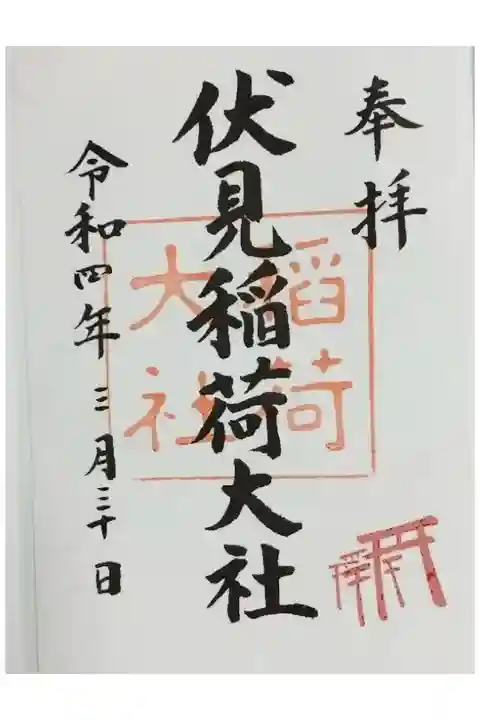 奉拝
伏見稲荷大社
稲荷
大社
令和四年三月三十日